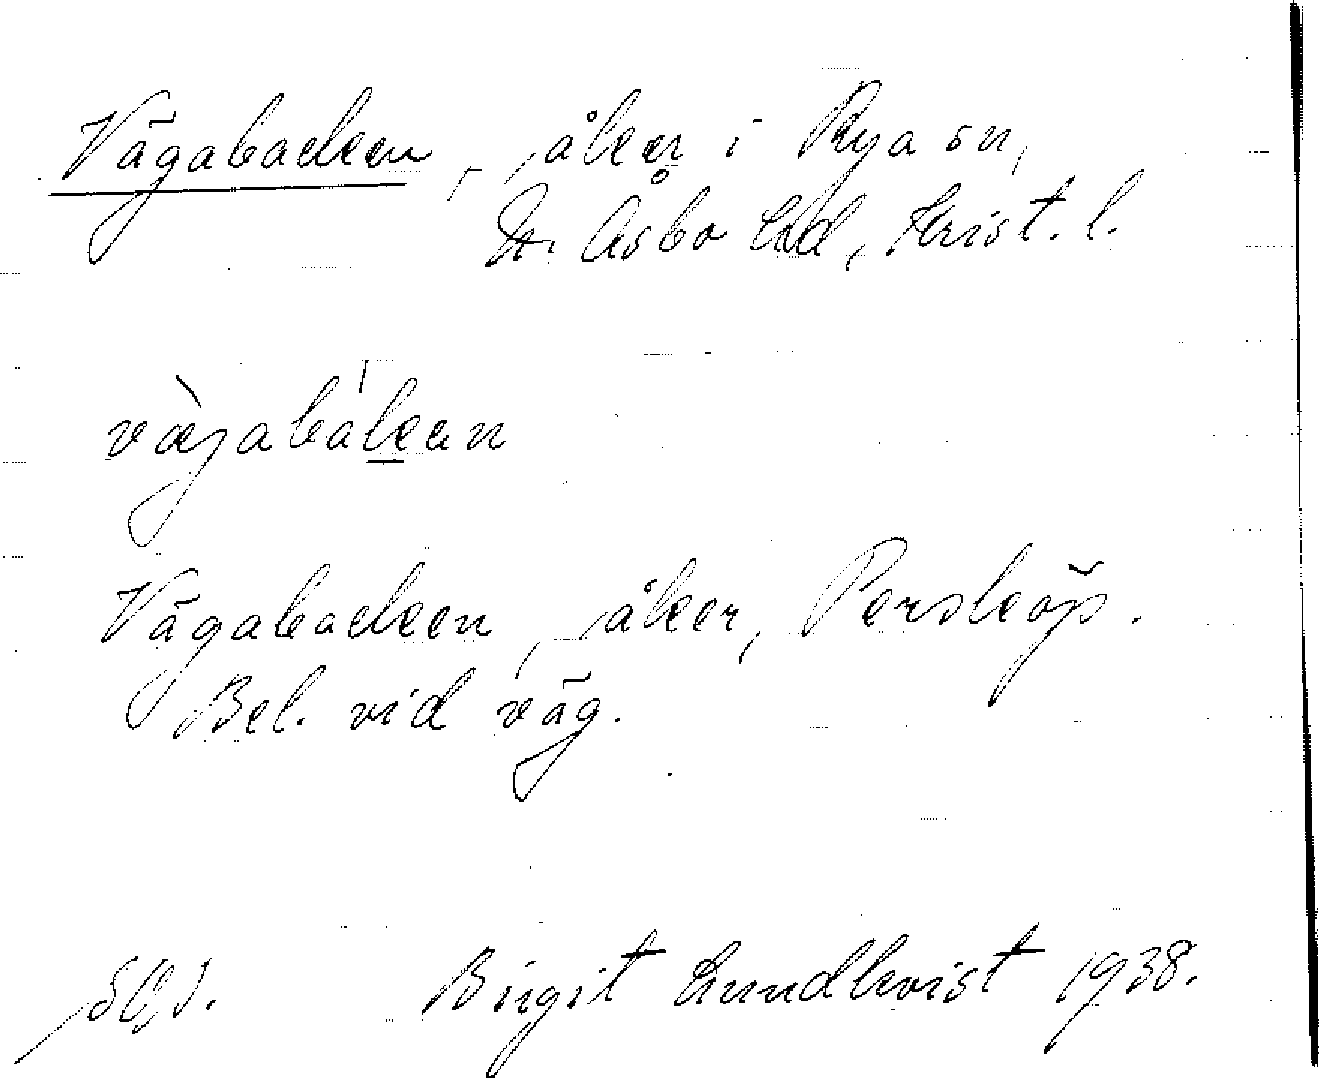 Vägabacken, åker i Rya sn,
N. Åsbo hd, Krist. l.
vägabákan
Vägabacken, åker, Persköp.
Bel. vid väg.
Birgit Lundkvist 1938.